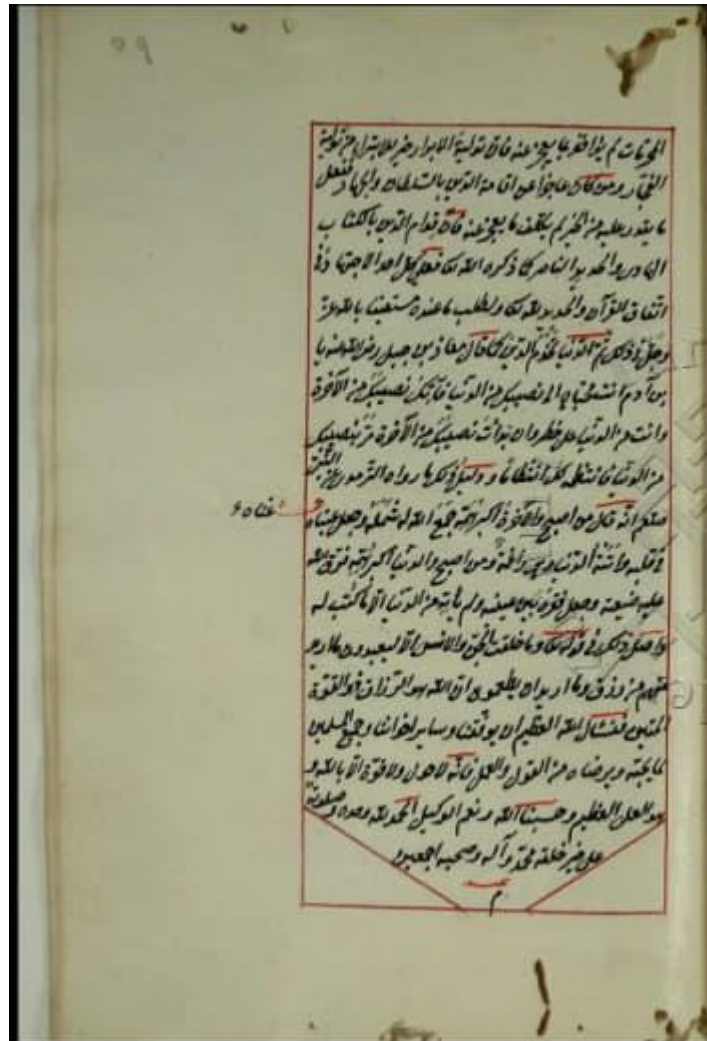 ٥٩
المحرمات لم يؤاخذ بما يعجز عنه فان تولية الابرار خير للامة من تولية
الفجار ومن كان عاجزا عن اقامة الدين بالسلطان والجهاد ففعل
ما يقدر عليه من الخير لم يكلف ما يعجز عنه فان قوام الدين بالكتاب
الهادي والحديد الناصر كما ذكره الله تعا فعلى كل احد الاجتهاد في
اتفاق القرآن والحديد لله تعا ولطلب ما عنده مستعينا بالله عز
وجل في ذلك ثم الدنيا تخدم الدين كما قال معاذ بن جبل رضى الله عنه يا
بن آدم انت محتاج الى نصيبك من الدنيا
وانت من الدنيا على خطر وان بدأت نصيبك من الآخرة مر بنصيبك
من الدنيا فانتظمه انتظاما ودليل ذلك ما رواه الترمذى عن النبي
صلعم انه قال من اصبح والآخرة اكبر همه جمع الله له شمله وجعل غناه
في قلبه واتته الدنيا وهي راغمة ومن اصبح والدنيا اكبر همه فرق الله
عليه ضيعته وجعل فقره بين عينيه ولم يأته من الدنيا الا ما كتب له
واصل ذلك في قوله تعا وما خلقت الجن والانس الا ليعبدون ما اريد
منهم من رزق وما اريد ان يطعمون ان الله هو الرزاق ذو القوة
المتين فنسئال الله العظيم ان يوفقنا وساير اخواننا وجميع المسلمين
لما يحبه ويرضاه من القول والعمل فانه لا حول ولا قوة الا بالله و
هو العلى العظيم وحسبنا الله ونعم الوكيل الحمد لله وحده وصلوته
على خير خلقه محمد وآله وصحبه اجمعين
م
غناه